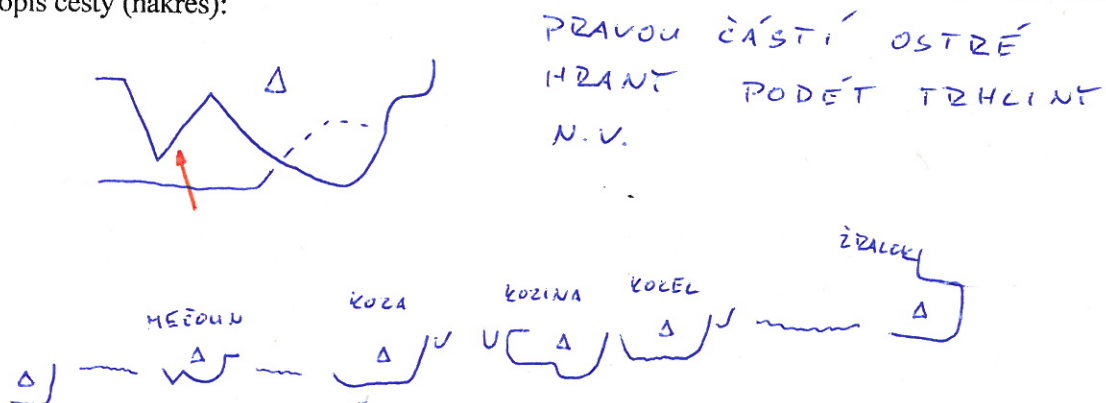 opis cesty (nákres):
PRAVOU ČÁSTÍ OSTRÉ
HRANY PODÉT TRHLINY
N.V.
ŽRALOK
MEČOUN
KOZA
KOZINA
KOZEL